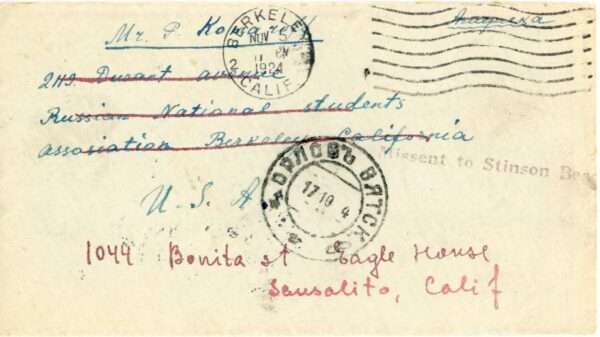 Mr. P.
BERKELEY
NOV 5
1924
2
CALIF.
Durant avenue
Russian National students
association Berkeley California
Missent to Stinson Bea
ОРЛОВЪ ВЯТСК
17 10 4
U. S. A
1044 Bonita st Eagle House
Sausalito, Calif